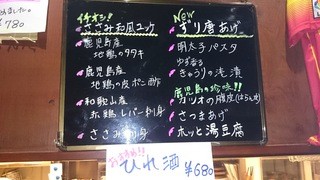 めました。
¥780
イチオシ!!
ささみ和風ユッケ
鹿児島産
地鶏のタタキ
鹿児島産
地鶏の皮ポン酢
和歌山産
地鶏レバー刺身
ささみ刺身
NEW
ずり唐あげ
明太子パスタ
きゅうりの浅漬
鹿児島の珍味!!
カツオの腹皮(はらんぼ)
さつまあげ
ホッと湯豆腐
ひれ酒
¥680